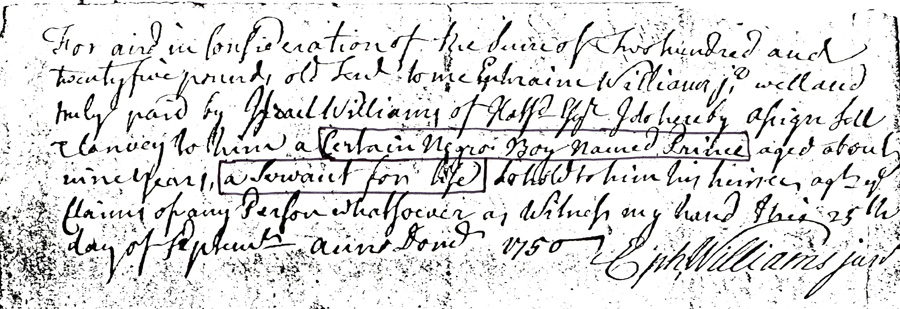 For and in Consideration of the Sume of Two hundred and
twenty five pounds old Ten.r to me Ephraim Williams jr. well and
truly paid by Israel Williams of Hatfd Esqr I do hereby asign Sell
& Convey to him a Certain Negro Boy Named Prince aged about
nine years, a Servant for life to hold to him his heirs &c agt ye
Claims of any Person whatsoever as Witness my hand this 25th
day of Septembr anno Domi 1750 Eph. Williams junr